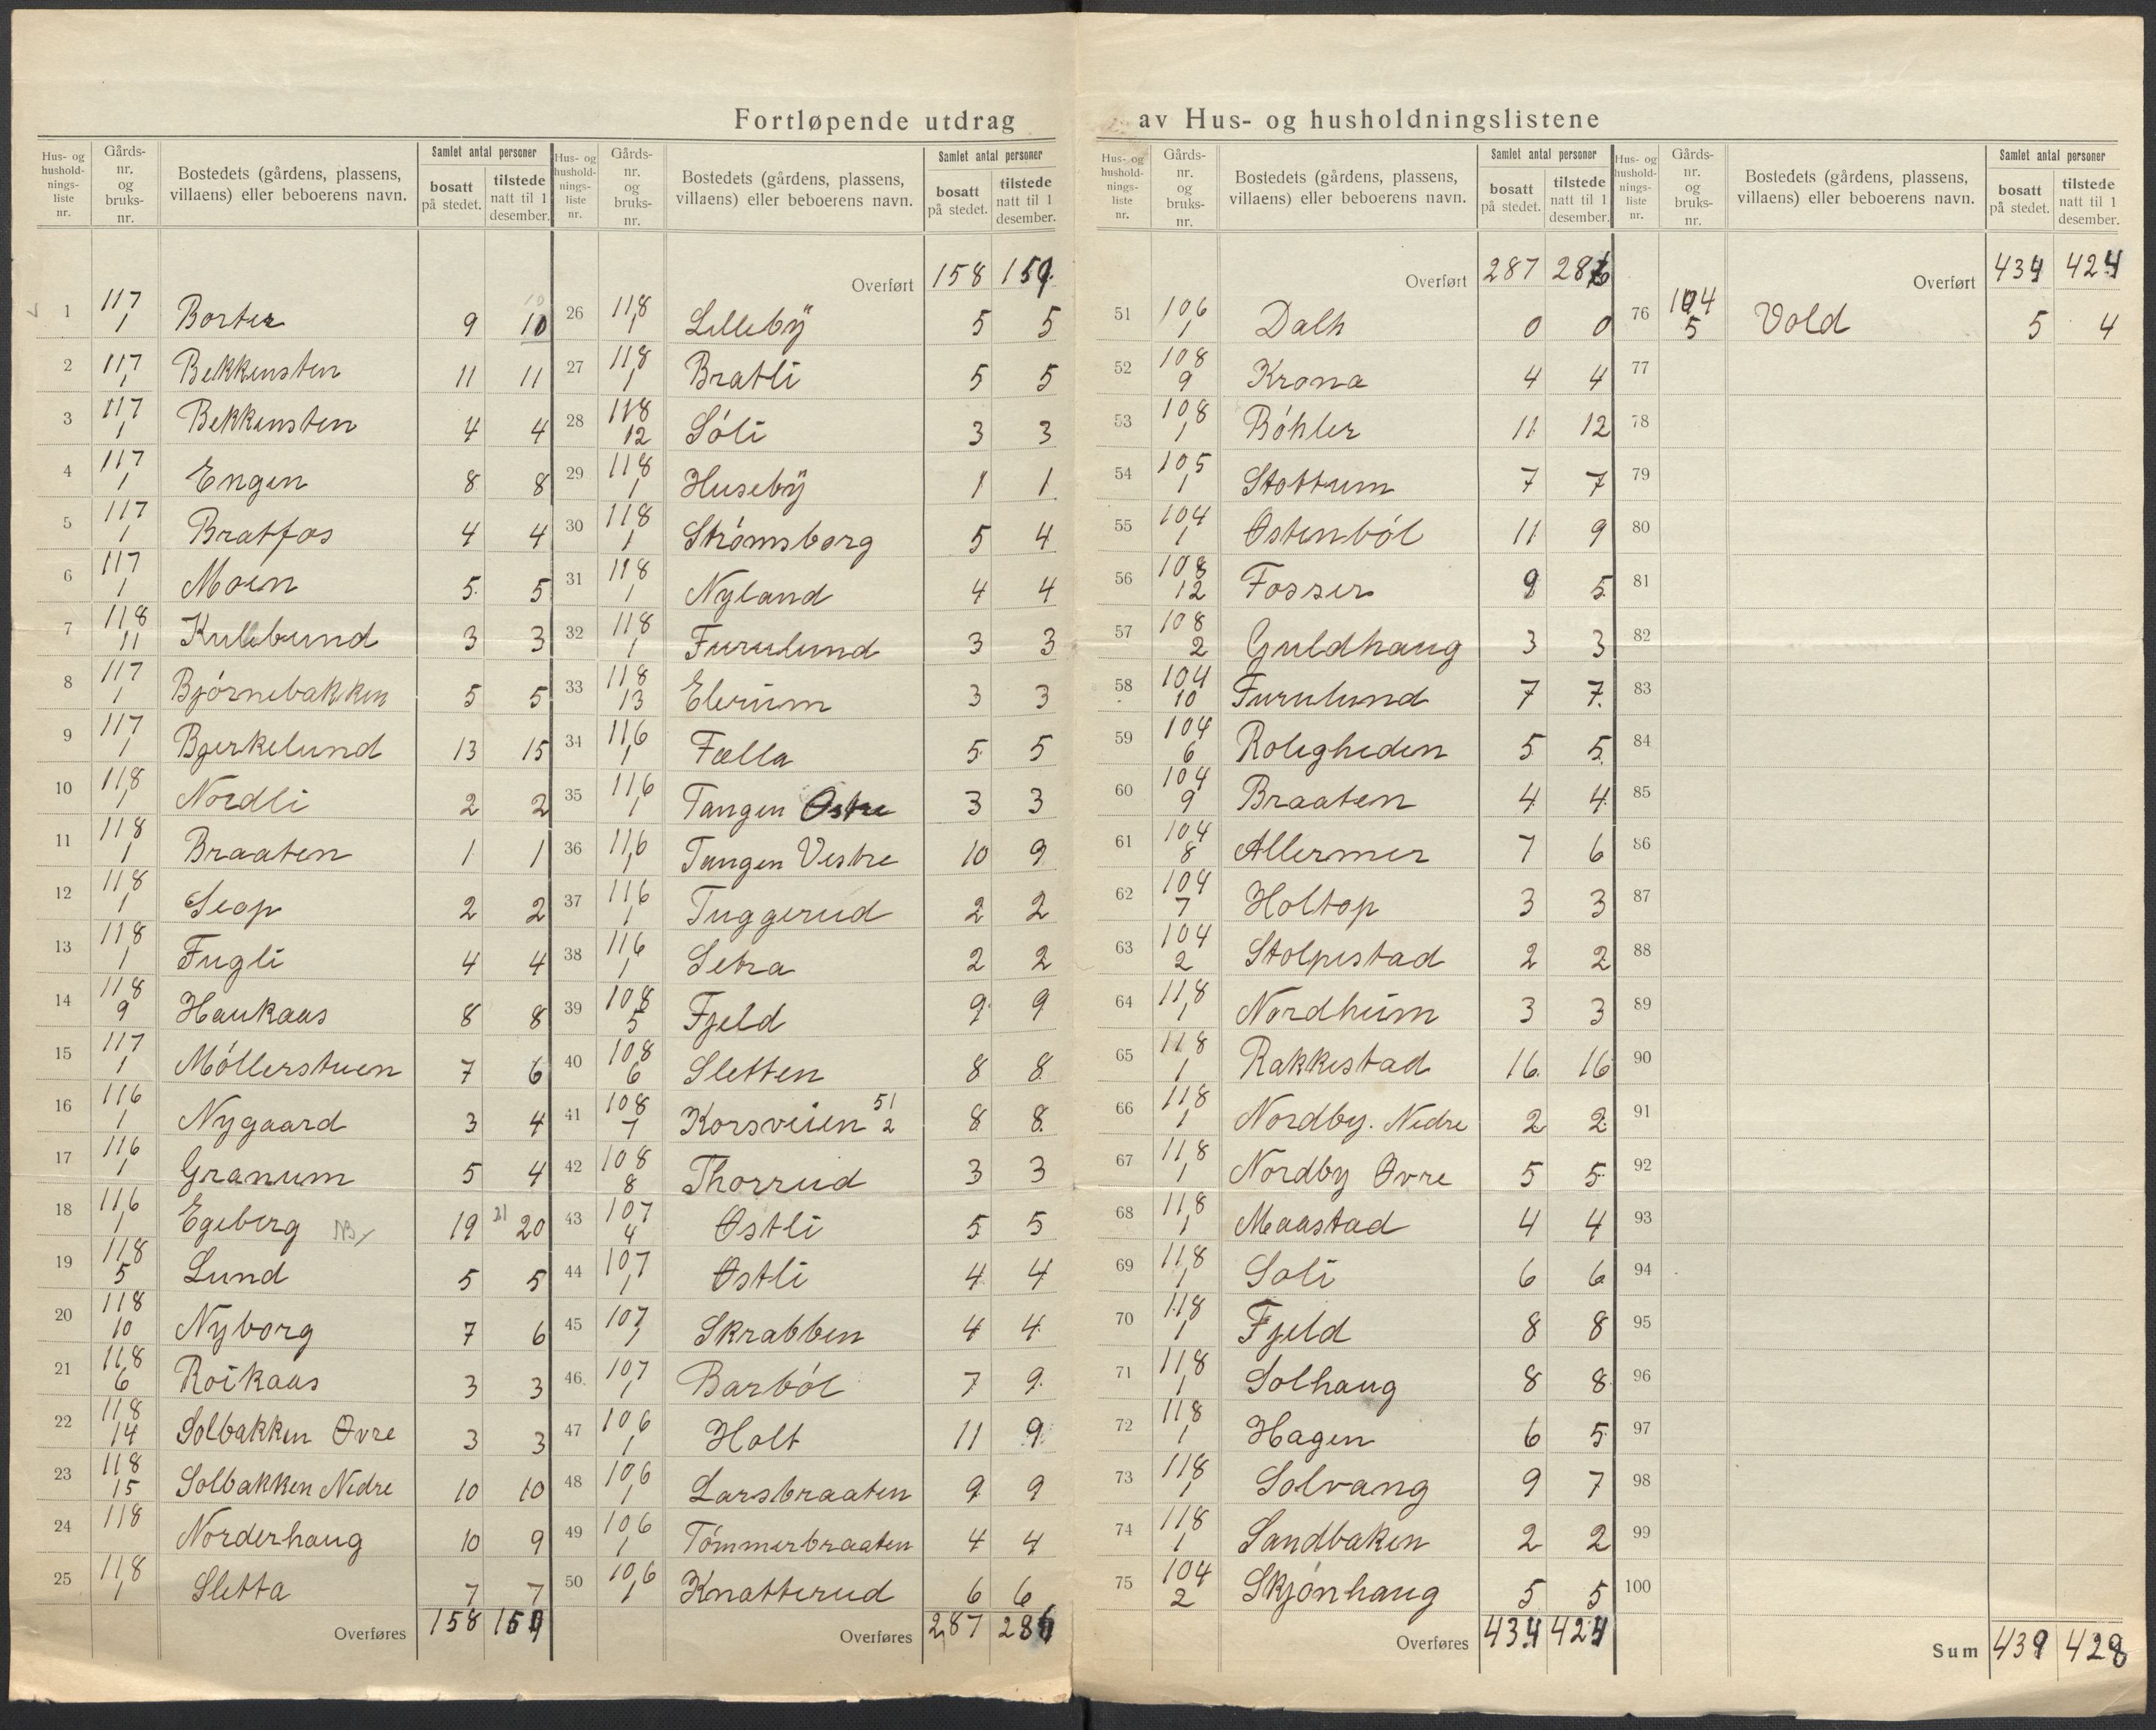 Fortløpende utdrag av Hus- og husholdningslistene
Hus- og husholdningsliste nr. | Gårds-nr. og bruks-nr. | Bostedets (gårdens, plassens, villaens) eller beboerens navn. | Samlet antal personer bosatt på stedet. | tilstede natt til 1 desember.
1 117/1 Borter 9 10
2 117/1 Bekkensten 11 11
3 117/1 Bekkensten 4 4
4 117/1 Engen 8 8
5 117/1 Bratfos 4 4
6 117/1 Moen 5 5
7 118/11 Kullebund 3 3
8 117/1 Bjørnebakken 5 5
9 117/1 Bjerkelund 13 15
10 118/1 Nordli 2 2
11 118/1 Braaten 1 1
12 118/1 Seop 2 2
13 118/1 Fugli 4 4
14 118/9 Haukaas 8 8
15 117/1 Möllerstuen 7 6
16 116/1 Nygaard 3 4
17 116/1 Granum 5 4
18 116/1 Egeberg NB 19 21 20
19 118/5 Lund 5 5
20 118/10 Nyborg 7 6
21 118/6 Roikaas 3 3
22 118/14 Solbakken Øvre 3 3
23 118/15 Solbakken Nedre 10 10
24 118 Norderhaug 10 9
25 118/1 Sletta 7 7
Overføres 158 159
Hus- og husholdningsliste nr. | Gårds-nr. og bruks-nr. | Bostedets (gårdens, plassens, villaens) eller beboerens navn. | Samlet antal personer bosatt på stedet. | tilstede natt til 1 desember.
Overført 158 159
26 118/1 Lilleby 5 5
27 118/1 Bratli 5 5
28 118/12 Sóli 3 3
29 118/1 Huseby 1 1
30 118/1 Strømsborg 5 4
31 118/1 Nyland 4 4
32 118/1 Furulund 3 3
33 118/13 Elerium 3 3
34 116/1 Fælla 5 5
35 116/1 Tangen Østre 3 3
36 116/1 Tangen Vestre 10 9
37 116/1 Tuggerud 2 2
38 116/1 Setra 2 2
39 108/5 Fjeld 9 9
40 108/6 Sletten 8 8
41 108/7 Korsveien 51/2 8 8
42 108/8 Thorrud 3 3
43 107/4 Østli 5 5
44 107/1 Østli 4 4
45 107/1 Skrabben 4 4
46 107/1 Barból 7 9
47 106/1 Holt 11 9
48 106/1 Larsbraaten 9 9
49 106/1 Tómmerbraaten 4 4
50 106/1 Knatterud 6 6
Overføres 287 286
Hus- og husholdningsliste nr. | Gårds-nr. og bruks-nr. | Bostedets (gårdens, plassens, villaens) eller beboerens navn. | Samlet antal personer bosatt på stedet. | tilstede natt til 1 desember.
Overført 287 286
51 106/1 Dalh 0 0
52 108/9 Krona 4 4
53 108/1 Bóhler 11 12
54 105/1 Stottum 7 7
55 104/1 Østenból 11 9
56 108/12 Fosser 9 5
57 108/2 Guldhaug 3 3
58 104/10 Furulund 7 7
59 104/6 Roligheden 5 5
60 104/9 Braaten 4 4
61 104/8 Allermer 7 6
62 104/7 Holtop 3 3
63 104/2 Stolpestad 2 2
64 118/1 Nordheim 3 3
65 118/1 Rakkestad 16 16
66 118/1 Nordby. Nedre 2 2
67 118/1 Nordby Øvre 5 5
68 118/1 Maastad 4 4
69 118/1 Soli 6 6
70 118/1 Fjeld 8 8
71 118/1 Solhaug 8 8
72 118/1 Hagen 6 5
73 118/1 Solvang 9 7
74 118/1 Sandbaken 2 2
75 104/2 Skjónhaug 5 5
Overføres 434 424
Hus- og husholdningsliste nr. | Gårds-nr. og bruks-nr. | Bostedets (gårdens, plassens, villaens) eller beboerens navn. | Samlet antal personer bosatt på stedet. | tilstede natt til 1 desember.
Overført 434 424
76 104/5 Vold 5 4
77
78
79
80
81
82
83
84
85
86
87
88
89
90
91
92
93
94
95
96
97
98
99
100
Sum 439 428